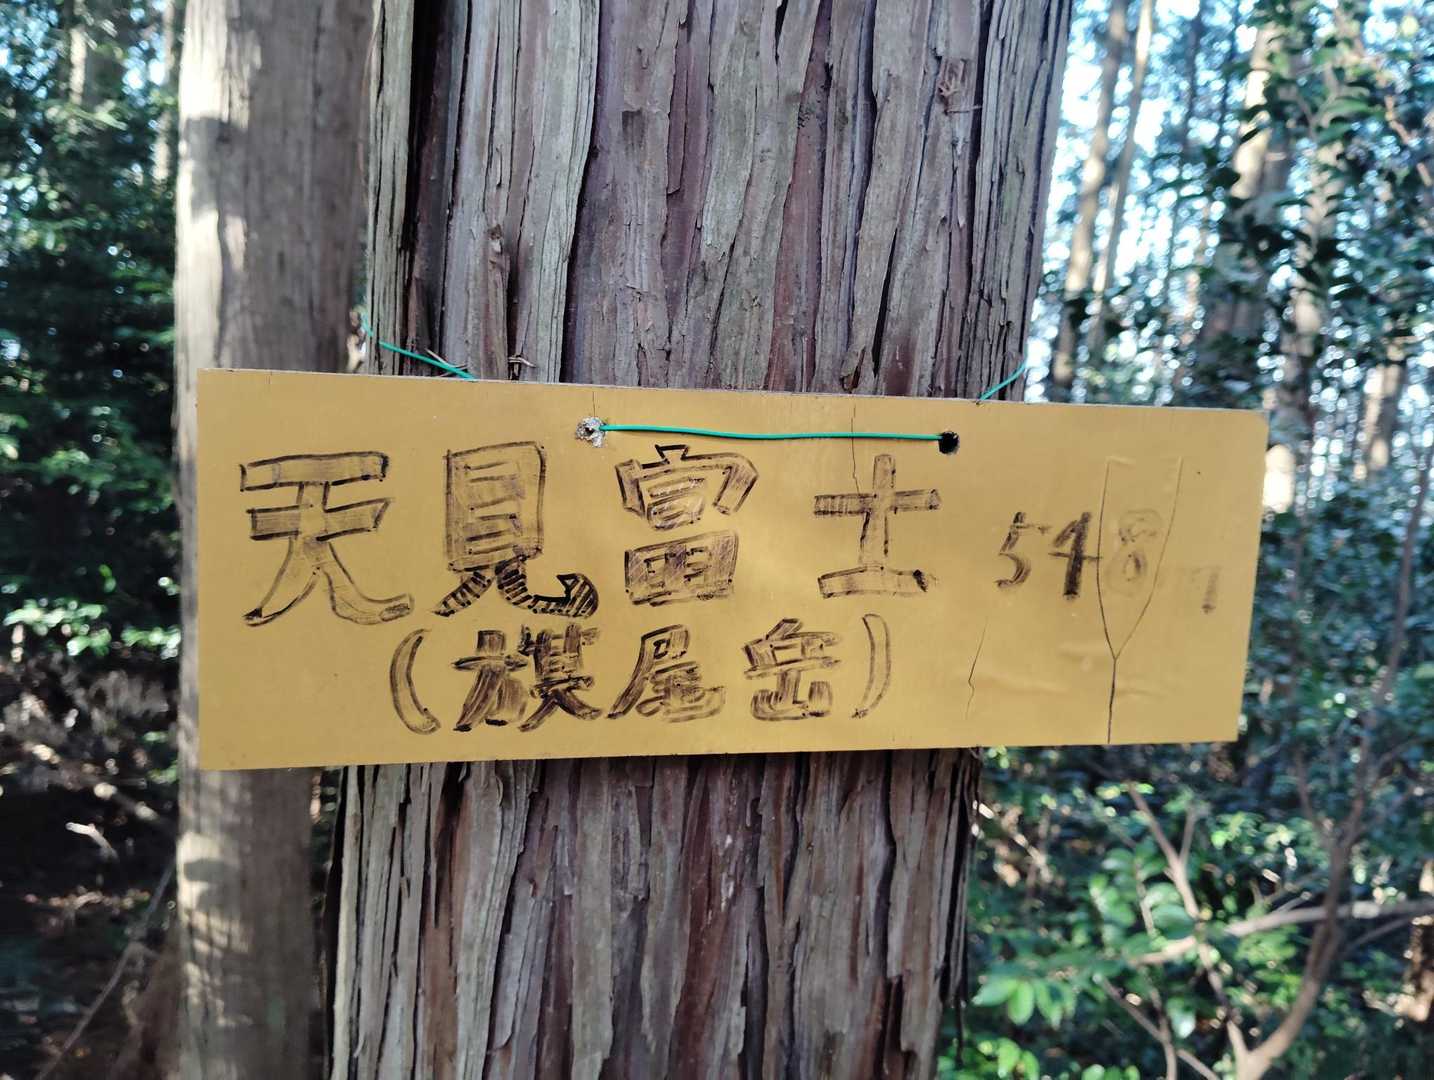 天見富士 548m
(旗尾岳)